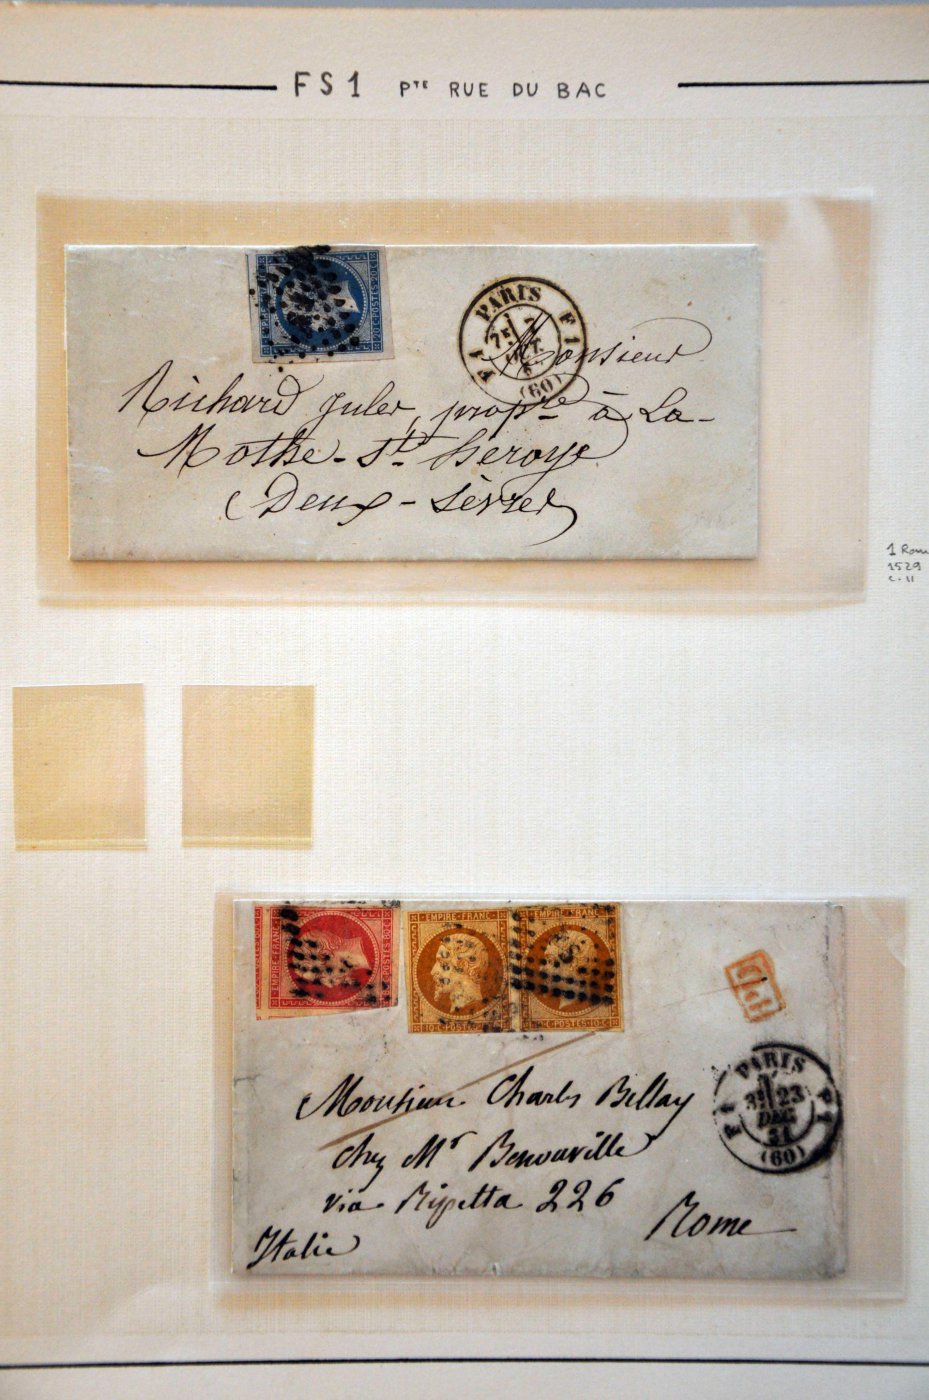 FS1 Pte RUE DU BAC
20 C POSTES 20 C
PARIS
F 1
7E
OCT.
(60)
Monsieur
Richard Jules, propre à La-
Mothe-St. Heroye
Deux-Sèvres
1 Rom
1529
c. 11
EMPIRE FRANC
EMPIRE FRANC
EMPIRE FRANC
10 C POSTES 10 C
POSTES 10 C
PD
PARIS
3E 23
DEC
54
(60)
Monsieur Charles Bellay
chez Mr Benouville
via Ripetta 226
Rome
Italie